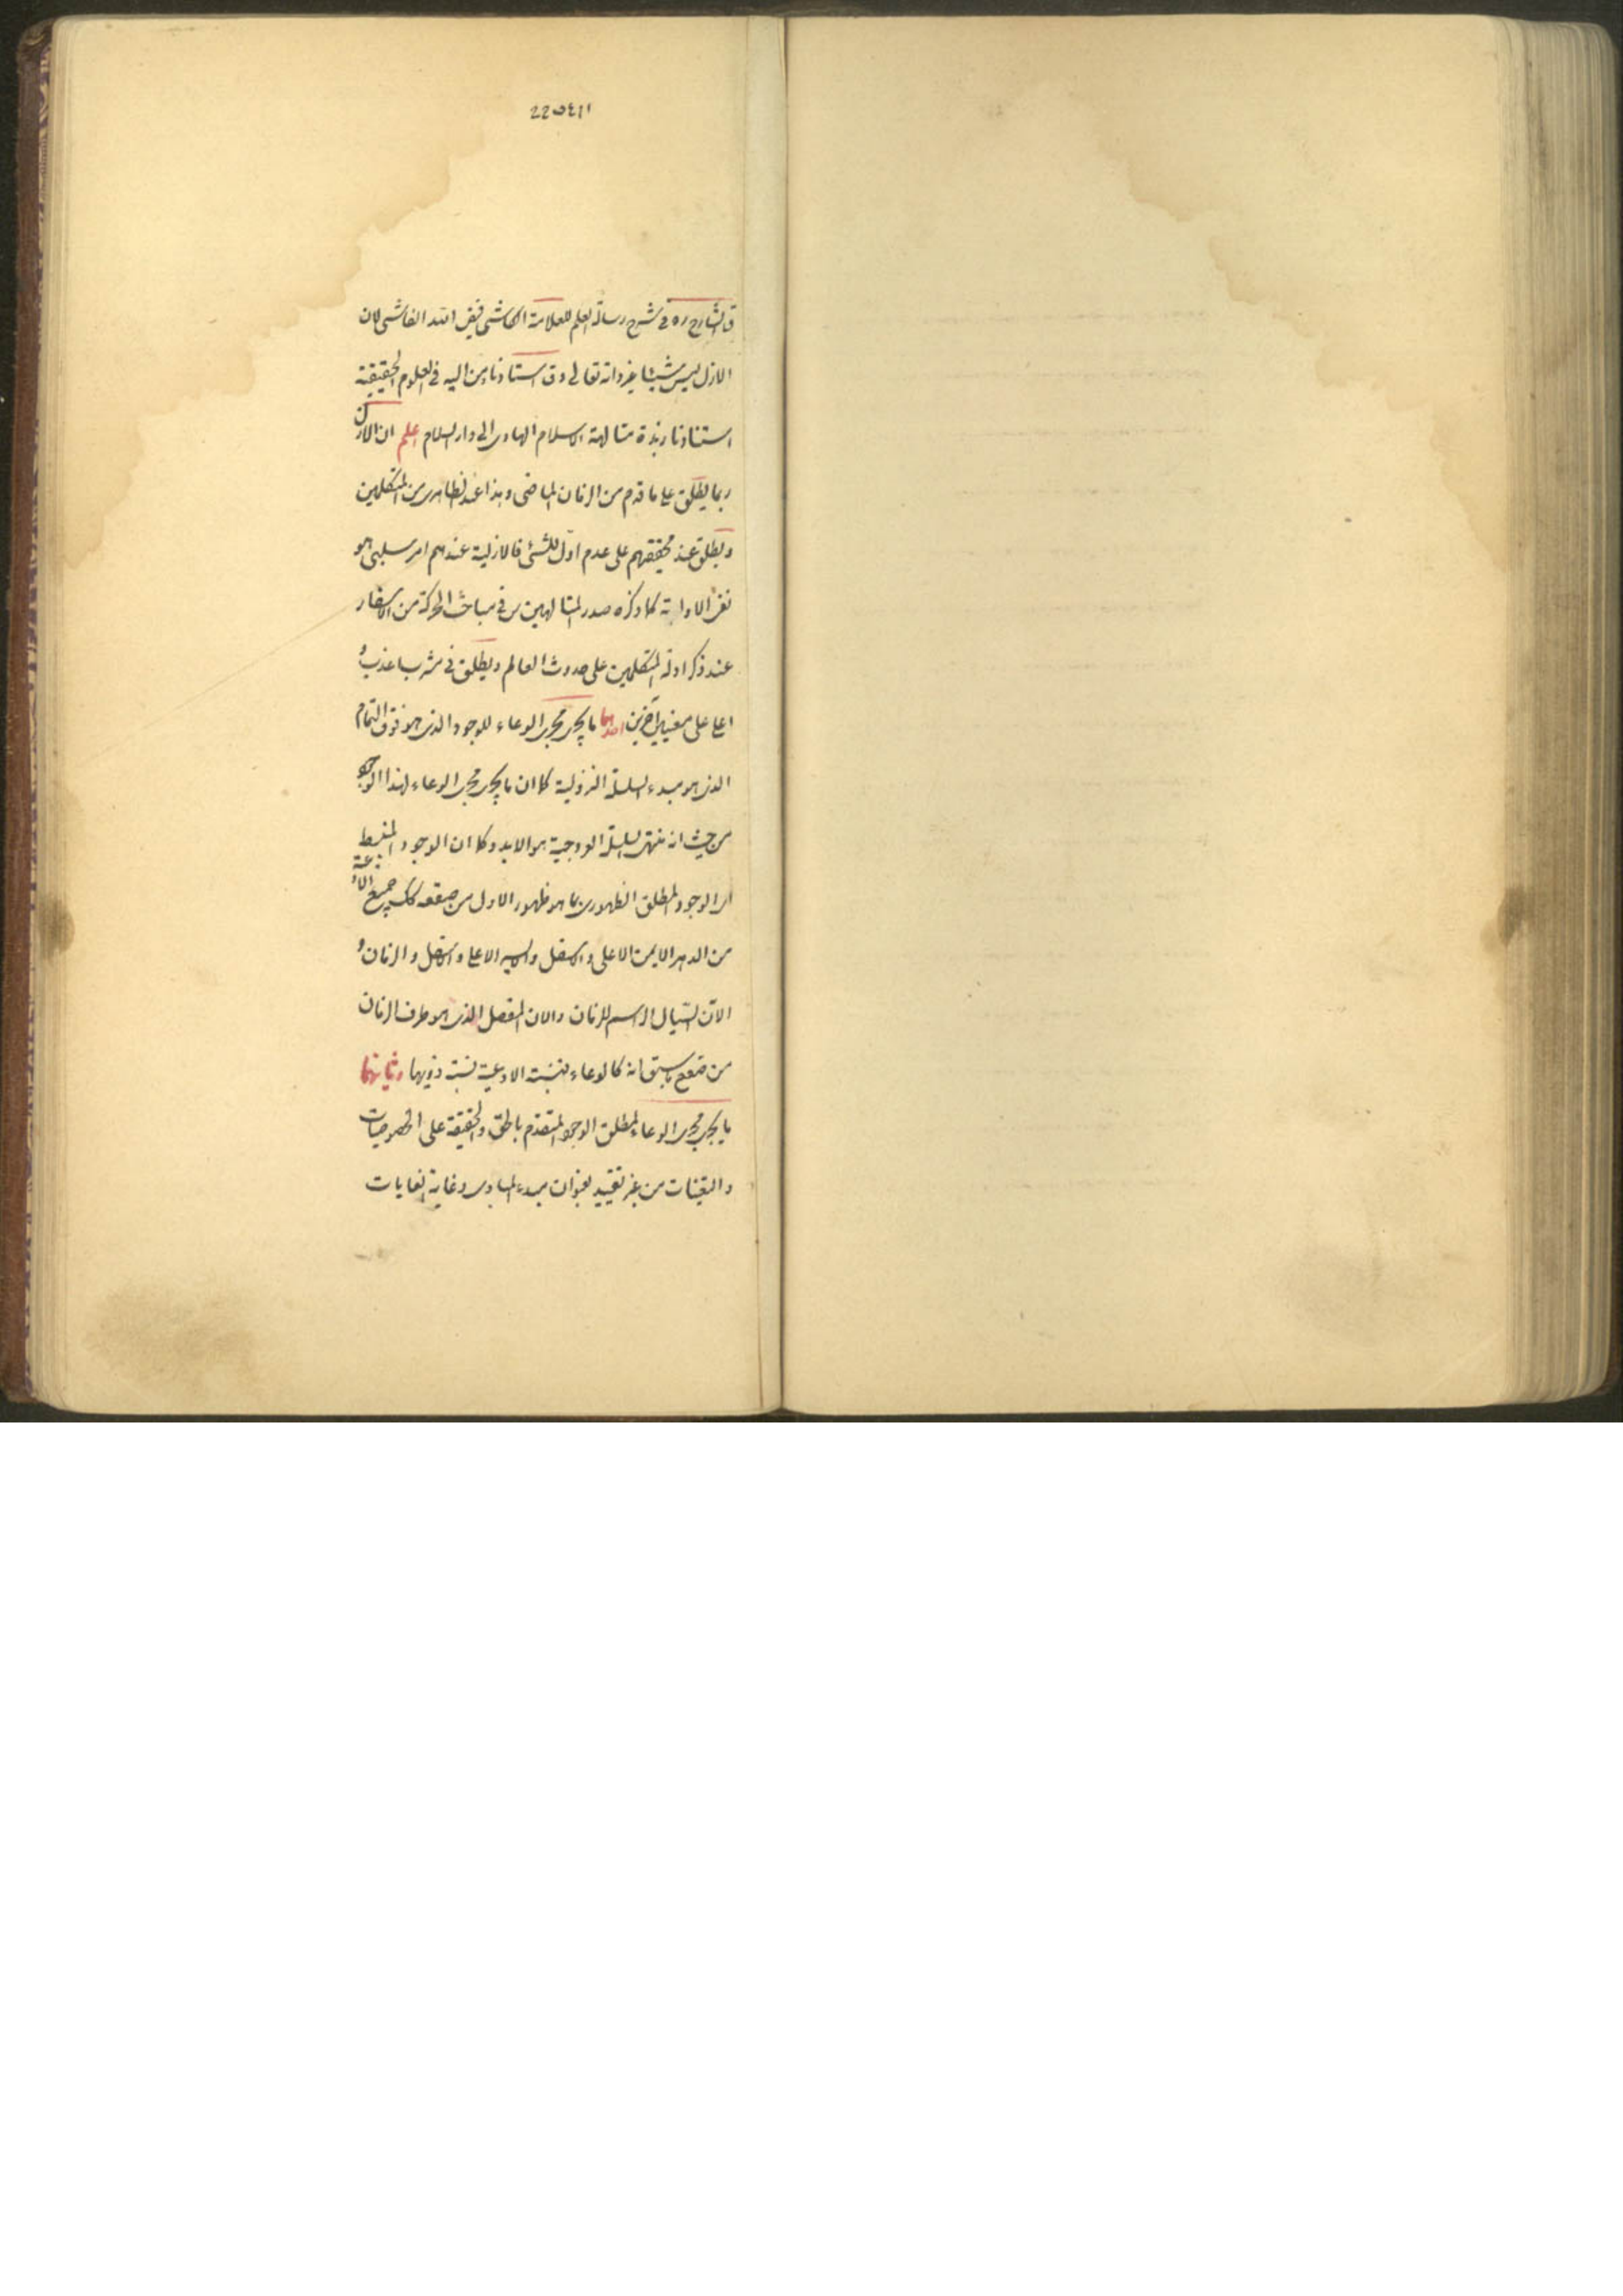 22541
ق الشارح ره في شرح رسالة العلم للعلامة الكاشي فيض الله الفاشي لان
الازل ليس شيئا غير ذاته تعالى وق استادنا ومن اليه في العلوم الحقيقية
استنادنا زبدة متالهة الاسلام الهادى الى دار السلام اعلم ان الازل
ربما يطلق على ما قدم من الزمان الماضى وهذا عند الظاهرى من المتكلمين
ويطلق عند محققهم على عدم اول للشئ فالازلية عندهم امر سلبى هو
نفى الاولية كما ذكره صدر المتالهين س في مباحث الحركة من الاسفار
عند ذكر ادلة المتكلمين على حدوث العالم ويطلق في مشرب اعذب و
اعلى على معنيين آخرين احدهما ما يجرى مجرى الوعاء للوجود الذى هو فوق التمام
الذى هو مبدء السلسلة النزولية كما ان ما يجرى مجرى الوعاء لهذا الوجود
من حيث انه منتهى السلسلة العروجية هو الابد وكما ان الوجود المنبسط
اى الوجود المطلق الظهورى بما هو ظهور الاول من صقعه كك جميع الاوعية
من الدهر الايمن الاعلى والاسفل والايسر الاعلى والاسفل والزمان و
الآن السيال الراسم للزمان والان المفصل الذى هو طرف الزمان
من صقع ما سبق انه كالوعاء فنسبته الاوعية نسبة ذويها وثانيهما
ما يجرى مجرى الوعاء لمطلق الوجود المتقدم بالحق والحقيقة على الخصوصيات
والتعينات من غير تقييد بعنوان مبدء المبادى وغاية الغايات